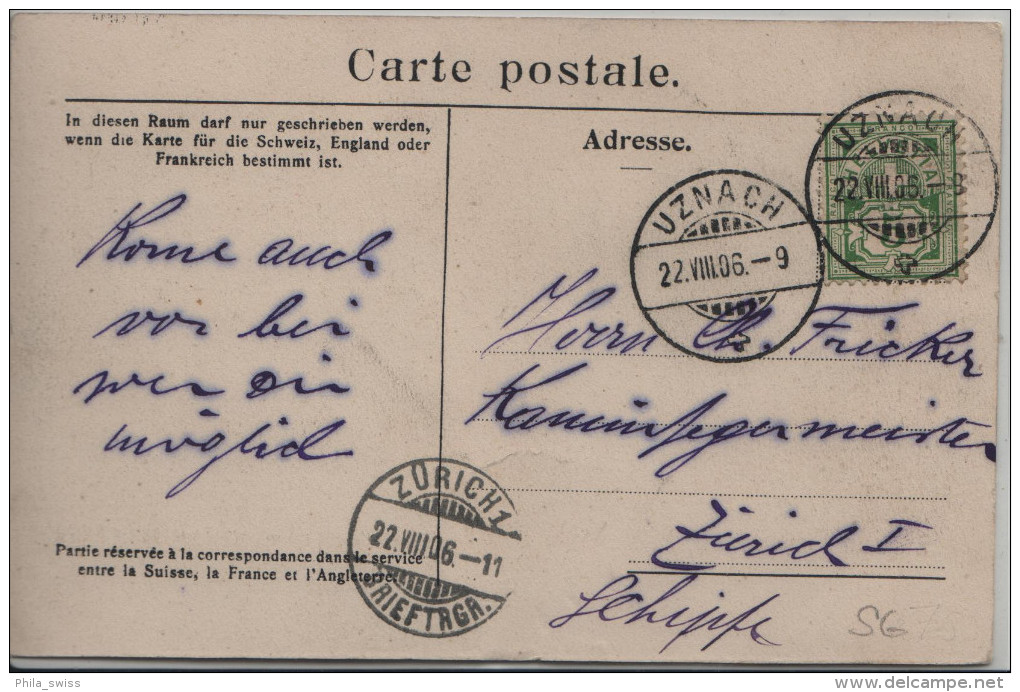 Carte postale.
In diesen Raum darf nur geschrieben werden,
wenn die Karte für die Schweiz, England oder
Frankreich bestimmt ist.
Adresse.
UZNACH
22.VIII.06.-9
FRANCO
HELVETIA
5
UZNACH
22.VIII.06.-9
Kome auch
vor bei
wen Dir
möglich
Herrn Ch. Fricker
Kaminfegermeister
Zürich I
Schipfe
ZÜRICH 1
22.VIII.06.-11
BRIEFTRGR.
Partie réservée à la correspondance dans le service
entre la Suisse, la France et l'Angleterre.
SG
Phila_swiss
delcampe.net